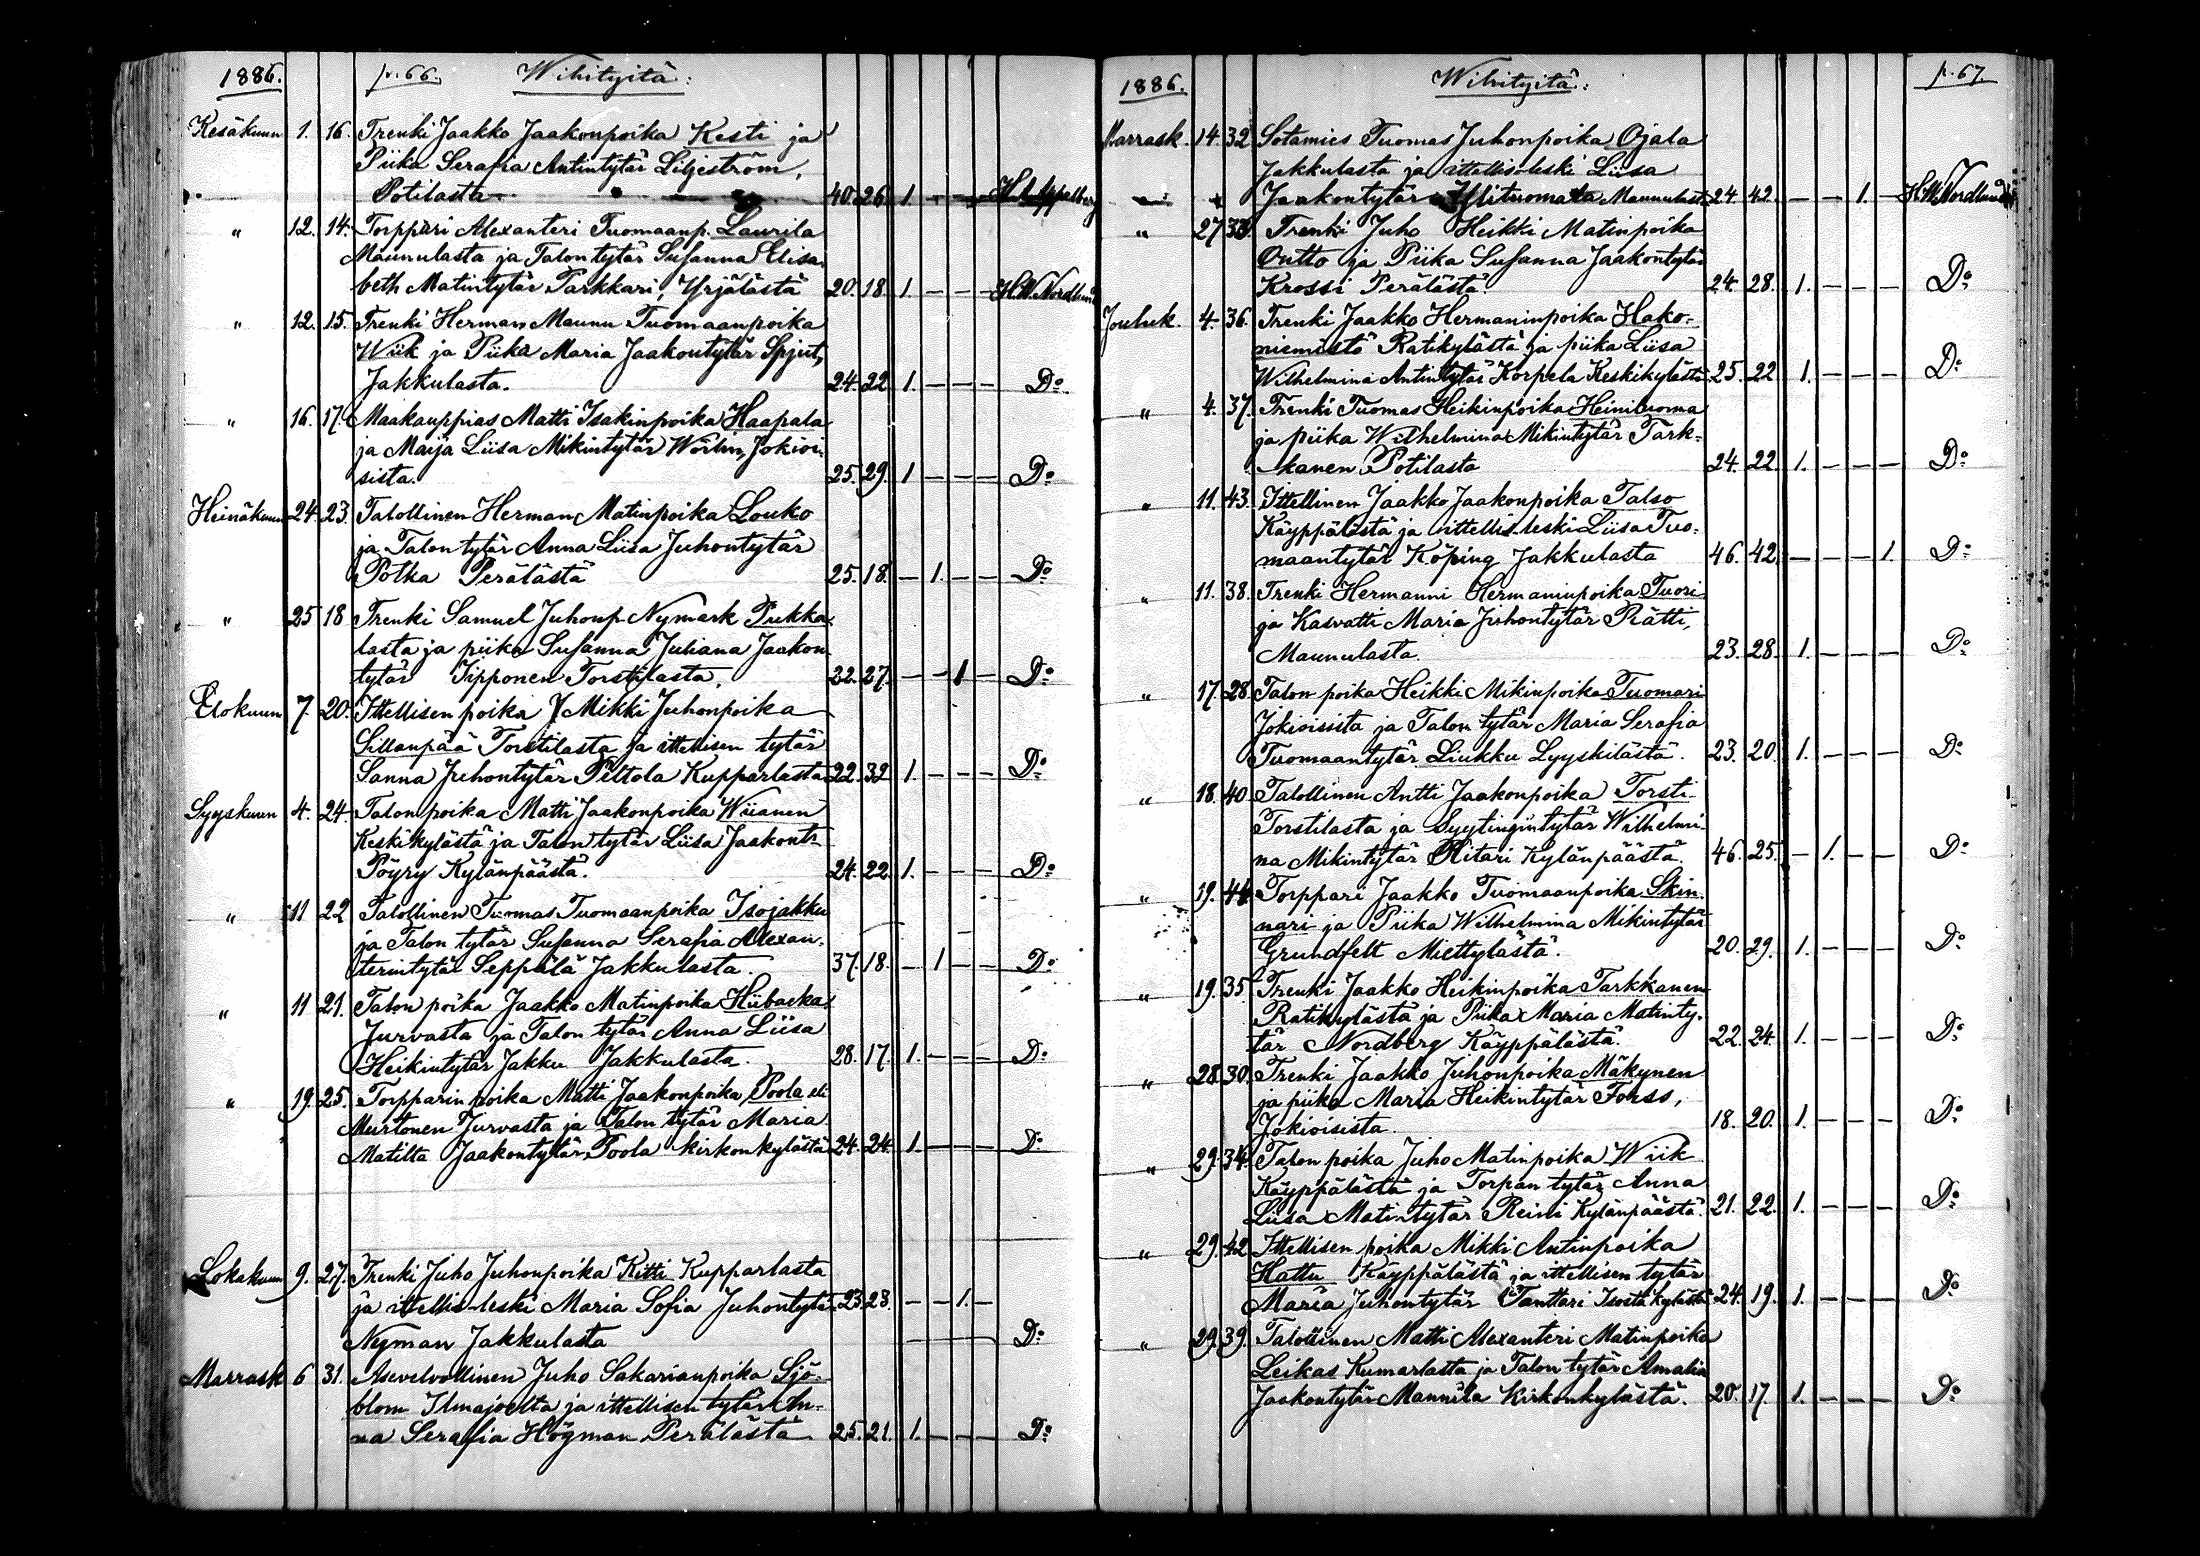 1886. p. 66. Wihityitä:
Kesäkuun 1. 16. Trenki Jaakko Jaakonpoika Kesti ja
Piika Serafia Antintytär Liljeström,
Potilasta 40. 26. 1 — — —
" 12. 14. Torppari Alexanteri Tuomaanp. Laurila
Maunulasta ja Talon tytär Susanna Elisa-
beth Matintytär Parkkari, Yrjälästä 20. 18. 1 — — — H.W. Nordlund
" 12. 15. Trenki Herman Maunu Tuomaanpoika
Wiik ja Piika Maria Jaakontytär Spjut,
Jakkulasta. 24. 22 1. — — — Do
" 16. 17. Maakauppias Matti Isakinpoika Haapala
ja Maija Liisa Mikintytär Wörlin, Jokioi-
sista. 25. 29. 1 — — — Do
Heinäkuun 24 23. Talollinen Herman Matinpoika Louko
ja Talon tytär Anna Liisa Juhontytär
Polka Perälästä 25. 18. — 1. — — Do
" 25 18 Trenki Samuel Juhonp. Nymark Pukka-
lasta ja piika Susanna Juliana Jaakon
tytär Yipponen Torstilasta. 22. 27. — — 1 — Do
Elokuun 7. 20. Ittellisen poika Mikki Juhonpoika
Sillanpää Torstilasta ja ittellisen tytär
Sanna Juhontytär Peltola Kupparlasta 22. 32 1. — — — Do
Syyskuun 4. 24. Talon poika Matti Jaakonpoika Wiianen
Keskikylästä ja Talon tytär Liisa Jaakont-
Pöyry Kylänpäästä. 24. 22. 1. — — — Do
" 11 22 Talollinen Tuomas Tuomaanpoika Isojakku
ja Talon tytär Susanna Serafia Alexan-
terintytär Seppälä Jakkulasta. 37. 18. — 1 — — Do
" 11 21. Talon poika Jaakko Matinpoika Hiibacka
Jurvasta ja Talon tytär Anna Liisa
Heikintytär Jakku Jakkulasta. 28. 17. 1. — — — Do
" 19. 25. Torpparin poika Matti Jaakonpoika Poola eli
Murtonen Jurvasta ja Talon tytär Maria
Matilta Jaakontytär Poola kirkonkylästä 24. 24. 1. — — — Do
Lokakuun 9. 27. Trenki Juho Juhonpoika Kitti Kupparlasta
ja ittellis-leski Maria Sofia Juhontytär 23 23. — — 1. —
Nyman Jakkulasta Do
Marrask 6 31. Asevelvollinen Juho Sakarianpoika Sjö-
blom Ilmajoelta ja ittellisen tytär An-
na Serafia Högman Perälästä 25. 21. 1. — — — Do
1886. Wihityitä: p. 67.
Marrask. 14. 32 Sotamies Tuomas Juhonpoika Ojala
Jakkulasta ja ittellis-leski Liisa
Jaakontytär Ylituomala Maunulasta 24. 42. — — 1. — H.W. Nordlund
" 27 33. Trenki Juho Heikki Matinpoika
Outto ja Piika Susanna Jaakontytär
Krossi Perälästä. 24. 28. 1. — — — Do
Jouluk. 4. 36. Trenki Jaakko Hermaninpoika Hako-
niemistö Ratikylästä ja piika Liisa
Wilhelmina Antintytär Korpela Keskikylästä 25. 22 1. — — — Do
" 4. 37. Trenki Tuomas Heikinpoika Heinituoma
ja piika Wilhelmina Mikintytär Tark-
kanen Potilasta 24. 22 1. — — — Do
" 11. 43. Ittellinen Jaakko Jaakonpoika Talso
Käyppälästä ja ittellis-leski Liisa Tuo-
maantytär Köping Jakkulasta 46. 42. — — — 1. Do
" 11. 38. Trenki Hermanni Hermaninpoika Tuori
ja Kasvatti Maria Juhontytär Prätti,
Maunulasta. 23. 28. 1. — — — Do
" 17. 28. Talon poika Heikki Mikinpoika Tuomari
Jokioisista ja Talon tytär Maria Serafia
Tuomaantytär Liukku Lyyskilästä. 23. 20. 1. — — — Do
" 18. 40. Talollinen Antti Jaakonpoika Torsti
Torstilasta ja Syytingintytär Wilhelmi-
na Mikintytär Ritari Kylänpäästä. 46. 25. — 1. — — Do
" 19. 44. Torppari Jaakko Tuomaanpoika Skin-
nari ja Piika Wilhelmina Mikintytär
Grundfelt Miettylästä. 20. 29. 1. — — — Do
" 19. 35. Trenki Jaakko Heikinpoika Tarkkanen
Ratikylästä ja Piika Maria Matinty-
tär Nordberg Käyppälästä. 22. 24. 1. — — — Do
" 28. 30. Trenki Jaakko Juhonpoika Mäkynen
ja piika Maria Heikintytär Forss,
Jokioisista. 18. 20. 1. — — — Do
" 29. 34. Talon poika Juho Matinpoika Wiik
Käyppälästä ja Torpan tytär Anna
Liisa Matintytär Reini Kylänpäästä. 21. 22. 1. — — — Do
" 29. 42. Ittellisen poika Mikki Antinpoika
Hattu Käyppälästä ja ittellisen tytär
Maria Juhontytär Tanttari Isostäkylästä 24. 19. 1. — — — Do
" 29. 39. Talollinen Matti Alexanteri Matinpoika
Leikas Kumarlasta ja Talon tytär Amalia
Jaakontytär Mannila Kirkonkylästä. 20. 17. 1. — — — Do